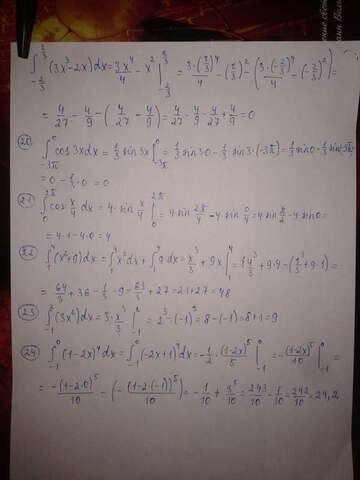 ∫_{-2/3}^{2/3} (3x³-2x)dx = 3x⁴/4 - x² |_{-2/3}^{2/3} = 3·(2/3)⁴/4 - (2/3)² - (3·(-2/3)⁴/4 - (-2/3)²) =
= 4/27 - 4/9 - (4/27 - 4/9) = 4/27 - 4/9 - 4/27 + 4/9 = 0
20
∫_{-3π}^{0} cos3xdx = 1/3 sin3x |_{-3π}^{0} = 1/3 sin3·0 - 1/3 sin3·(-3π) = 1/3 sin0 + 1/3 sin(-9π)
= 0 - 1/3·0 = 0
21 ∫_{0}^{2π} cos x/4 dx = 4·sin x/4 |_{0}^{2π} = 4 sin 2π/4 - 4 sin 0/4 = 4 sin π/2 - 4 sin0 =
= 4·1 - 4·0 = 4
22 ∫_{1}^{4} (x²+9)dx = ∫_{1}^{4} x²dx + ∫_{1}^{4} 9dx = x³/3 + 9x |_{1}^{4} = 4³/3 + 9·4 - (1³/3 + 9·1) =
= 64/3 + 36 - 1/3 - 9 = 63/3 + 27 = 21 + 27 = 48
23 ∫_{-1}^{2} (3x²)dx = 3·x³/3 |_{-1}^{2} = 2³ - (-1)³ = 8 - (-1) = 8 + 1 = 9
24 ∫_{-1}^{0} (1-2x)⁴dx = ∫_{-1}^{0} (-2x+1)⁴dx = -1/2 · (1-2x)⁵/5 |_{-1}^{0} = -(1-2x)⁵/10 |_{-1}^{0} =
= -(1-2·0)⁵/10 - (-(1-2·(-1))⁵/10) = -1/10 + 3⁵/10 = 243/10 - 1/10 = 242/10 = 24,2